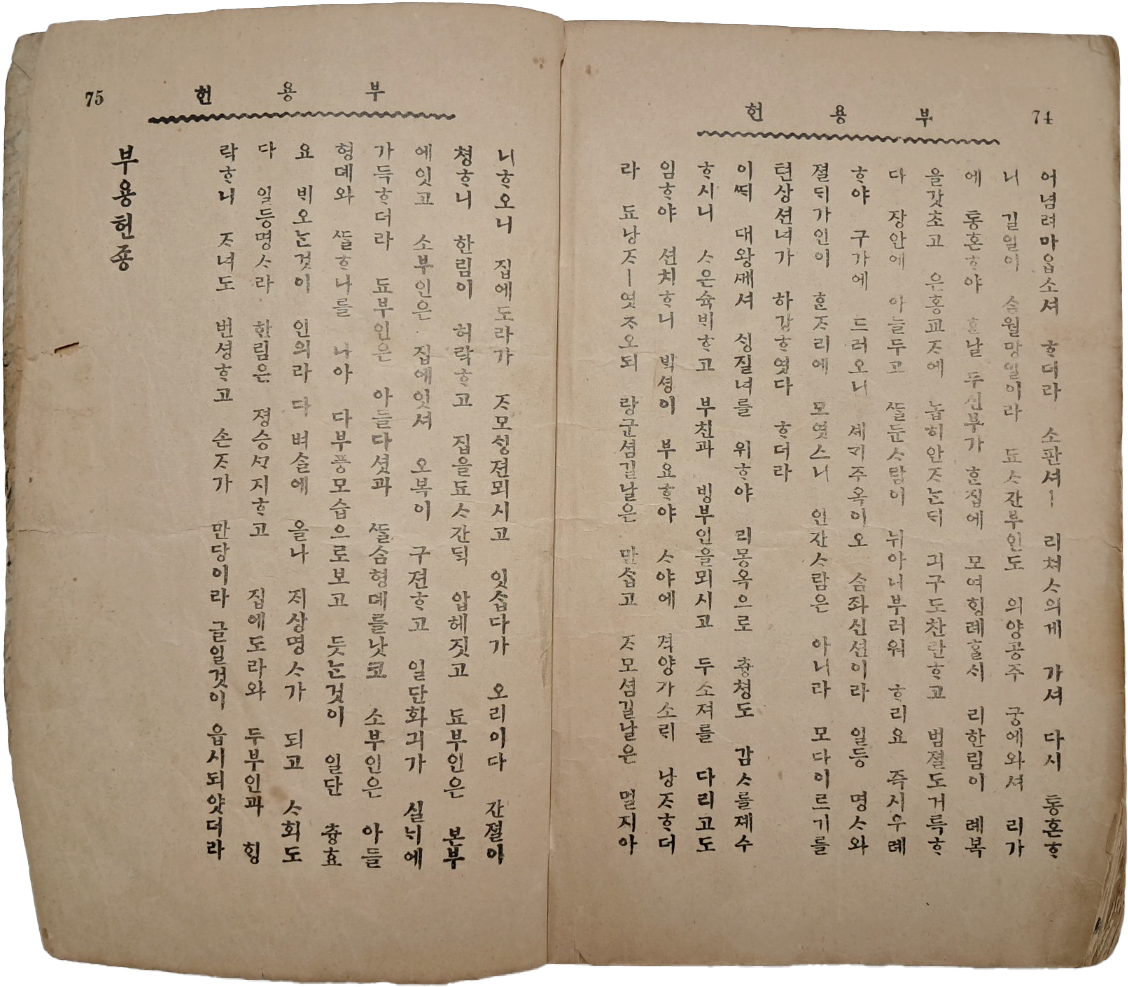 74
부 용 헌
어념려마옵소셔 ᄒᆞ더라 소판셔ㅣ 리쳐ᄉᆞ의게 가셔 다시 통혼ᄒᆞ
니 길일이 습월망일이라 됴ᄉᆞ잔부인도 의양공주 궁에와셔 리가
에 통혼ᄒᆞ야 ᄒᆞᆫ날 두신부가 ᄒᆞᆫ집에 모여ᄒᆡᆼ례ᄒᆞᆯᄉᆡ 리한림이 례복
을갓초고 은홍교ᄌᆞ에 놉히안ᄌᆞᄂᆞᆫᄃᆡ 긔구도찬란ᄒᆞ고 범졀도거륵ᄒᆞ
다 장안에 아들두고 ᄯᆞᆯ둔ᄉᆞ람이 뉘아니부러워 ᄒᆞ리요 즉시우례
ᄒᆞ야 구가에 드러오니 셰ᄀᆡ주옥이오 습좌신션이라 일등 명ᄉᆞ와
졀ᄃᆡ가인이 ᄒᆞᆫᄌᆞ리에 모엿스니 인잔ᄉᆞ람은 아니라 모다이르기를
텬상션녀가 하강ᄒᆞ엿다 ᄒᆞ더라
이ᄯᆡ 대왕ᄭᅦ셔 ᄉᆡᆼ질녀를 위ᄒᆞ야 리몽옥으로 츙쳥도 감ᄉᆞ를졔수
ᄒᆞ시니 ᄉᆞ은슉ᄇᆡᄒᆞ고 부친과 빙부인을뫼시고 두소져를 다리고도
임ᄒᆞ야 션치ᄒᆞ니 ᄇᆡᆨ셩이 부요ᄒᆞ야 ᄉᆞ야에 격양가소ᄅᆡ 낭ᄌᆞᄒᆞ더
라 됴낭ᄌᆞㅣ엿ᄌᆞ오되 랑군셤길날은 만습고 ᄌᆞ모셤길날은 멀지아
75
부 용 헌
니ᄒᆞ오니 집에도라가 ᄌᆞ모ᄉᆡᆼ젼뫼시고 잇습다가 오리이다 잔졀이
쳥ᄒᆞ니 한림이 허락ᄒᆞ고 집을됴ᄉᆞ간ᄃᆡᆨ 압헤짓고 됴부인은 본부
에잇고 소부인은 집에잇셔 오복이 구젼ᄒᆞ고 일단화긔가 실ᄂᆡ에
가득ᄒᆞ더라 됴부인은 아들다셧과 ᄯᆞᆯ습형뎨를낫코 소부인은 아들
형뎨와 ᄯᆞᆯᄒᆞ나를 나아 다부풍모습으로보고 듯ᄂᆞᆫ것이 일단 츙효
요 ᄇᆡ오ᄂᆞᆫ것이 인의라 다 벼슬에 올나 ᄌᆡ상명ᄉᆞ가 되고 ᄉᆞ회도
다 일등명ᄉᆞ라 한림은 졍승ᄭᆞ지ᄒᆞ고 집에도라와 두부인과 ᄒᆡᆼ
락ᄒᆞ니 ᄌᆞ녀도 번셩ᄒᆞ고 손ᄌᆞ가 만당이라 글일것이 읍시되얏더라
부용헌죵